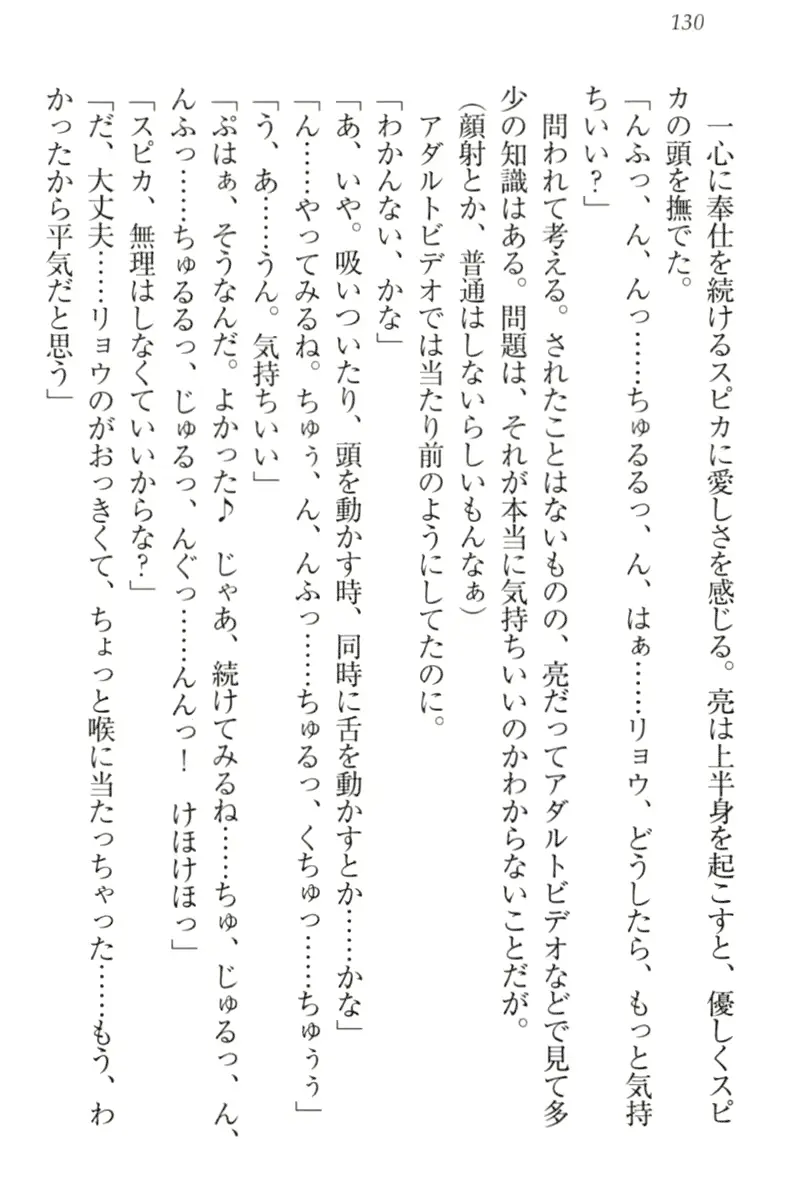 130
一心に奉仕を続けるスピカに愛しさを感じる。亮は上半身を起こすと、優しくスピ
カの頭を撫でた。
「んふっ、ん、んっ……ちゅるるっ、ん、はぁ……リョウ、どうしたら、もっと気持
ちいい？」
問われて考える。されたことはないものの、亮だってアダルトビデオなどで見て多
少の知識はある。問題は、それが本当に気持ちいいのかわからないことだが。
（顔射とか、普通はしないらしいもんなぁ）
アダルトビデオでは当たり前のようにしてたのに。
「わかんない、かな」
「あ、いや。吸いついたり、頭を動かす時、同時に舌を動かすとか……かな」
「ん……やってみるね。ちゅぅ、ん、んふっ……ちゅるっ、くちゅっ……ちゅぅぅ」
「う、あ……うん。気持ちいい」
「ぷはぁ、そうなんだ。よかった♪　じゃあ、続けてみるね……ちゅ、じゅるっ、ん、
んふっ……ちゅるるっ、じゅるっ、んぐっ……んんっ！　けほけほっ」
「スピカ、無理はしなくていいからな？」
「だ、大丈夫……リョウのがおっきくて、ちょっと喉に当たっちゃった……もう、わ
かったから平気だと思う」